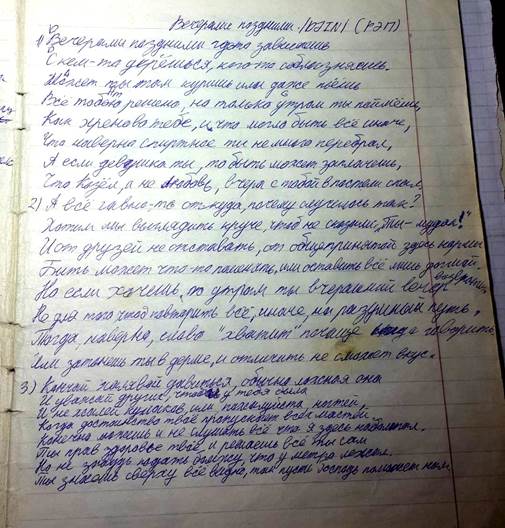 Вечерами поздними. /BATN/ (РЭП)
1) Вечерами поздними где-то зависаешь
С кем-то дерёшься, кого-то соблазняешь.
Может ты там куришь или даже пьёшь
Всё тобою решено, но только утром ты поймёшь,
Как хреново тебе, и, что могло быть всё иначе,
Что наверно спиртное ты немного перебрал,
А если девушка ты, то быть может заплачешь,
Что козёл, а не любовь, вчера с тобой в постели спал.
2) А всё говно-то откуда, почему случилось так?
Хотим мы выглядить круче, чтоб не сказали, "Ты - мудак!"
И от друзей не отставать, от общепринятой здесь нормы
Быть может что-то поменять, или оставить всё лишь
Но если хочешь, утром ты вчерашний вечер
Но для того чтоб повторить всё, иначе, на разумный путь.
Тогда, наверно, слово "хватит" почаще говорить
Или затонешь ты в дерме, и отличить не сможет вкус.
3) Кончай халявой давиться, обычно ложная она
И уважай других, чтоб у тебя была
И не жалей кулаков, или, пожалуйста, ногтей,
Когда достоинство твоё пропускает всех мастей.
Конечно можешь и не слушать всё что я здесь наболтал.
Ты прав здоровье твоё, и решаешь всё ты сам
Но не забудь подать бомжу, что у метро лежит.
Ты знаешь сверху всё видно, так пусть Господь поможет нам.